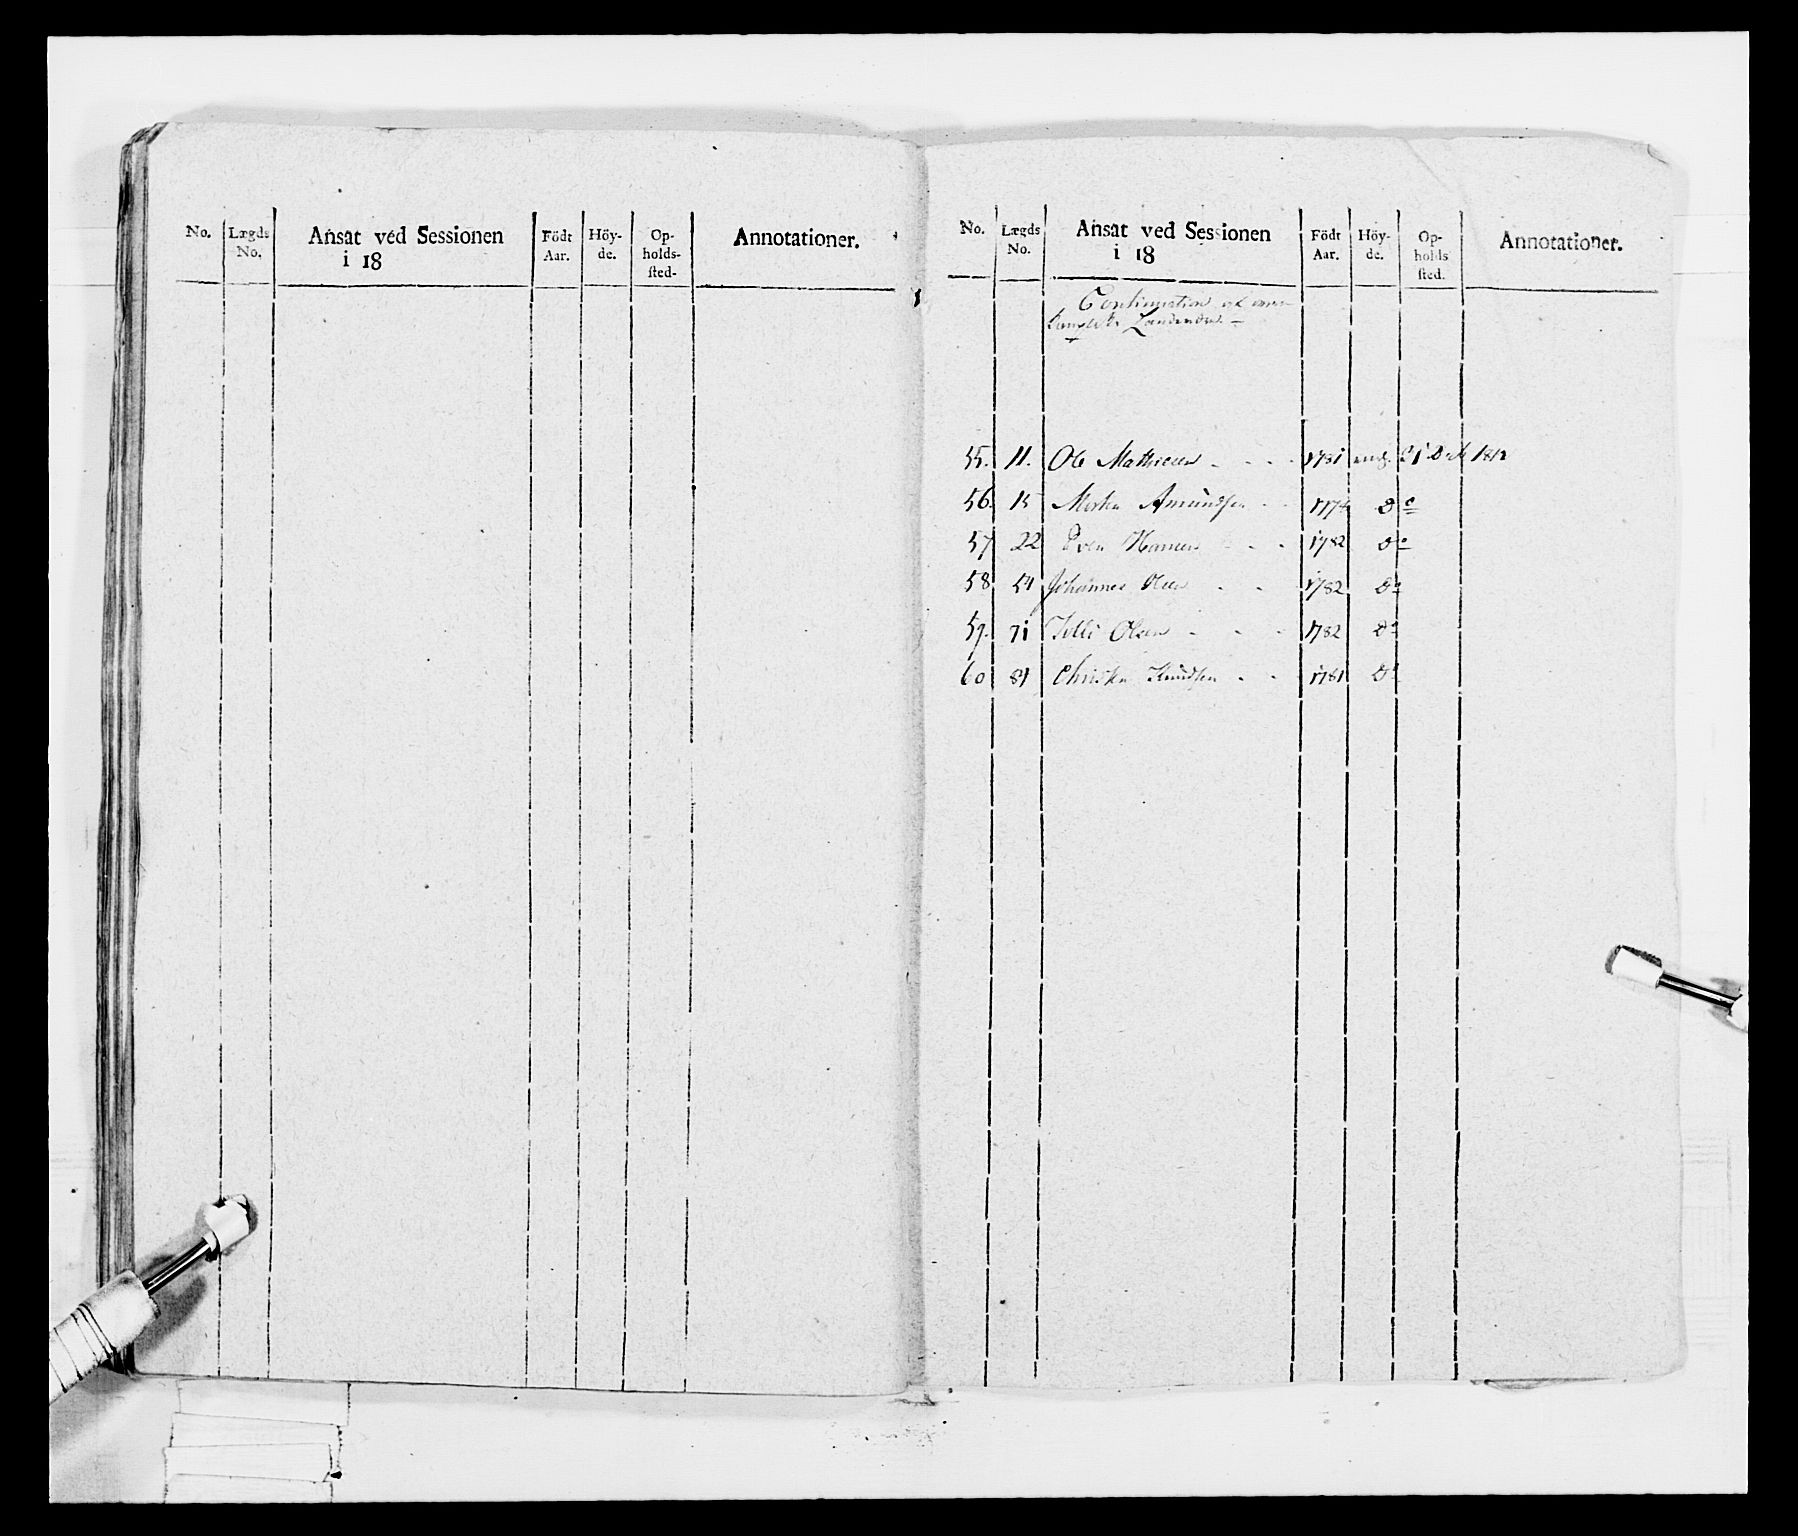 No. Lægds No. Ansat ved Sessionen i 18 Födt Aar. Höy- de. Op- holds- sted- Annotationer.
No. Lægds No. Ansat ved Sessionen i 18 Födt Aar. Höy- de. Op- holds sted. Annotationer.
Continuation af
55. 11. Ole Mathiesen - - - - 1781 1812
56. 15 Morten Amundsen - - 1774 Do
57 22 Even Hansen - - - 1782 Do
58 54 Johannes Olsen - - 1782 Do
59. 71 Olsen - - - 1782 Do
60 81 Christen Knudsen - - 1781 Do